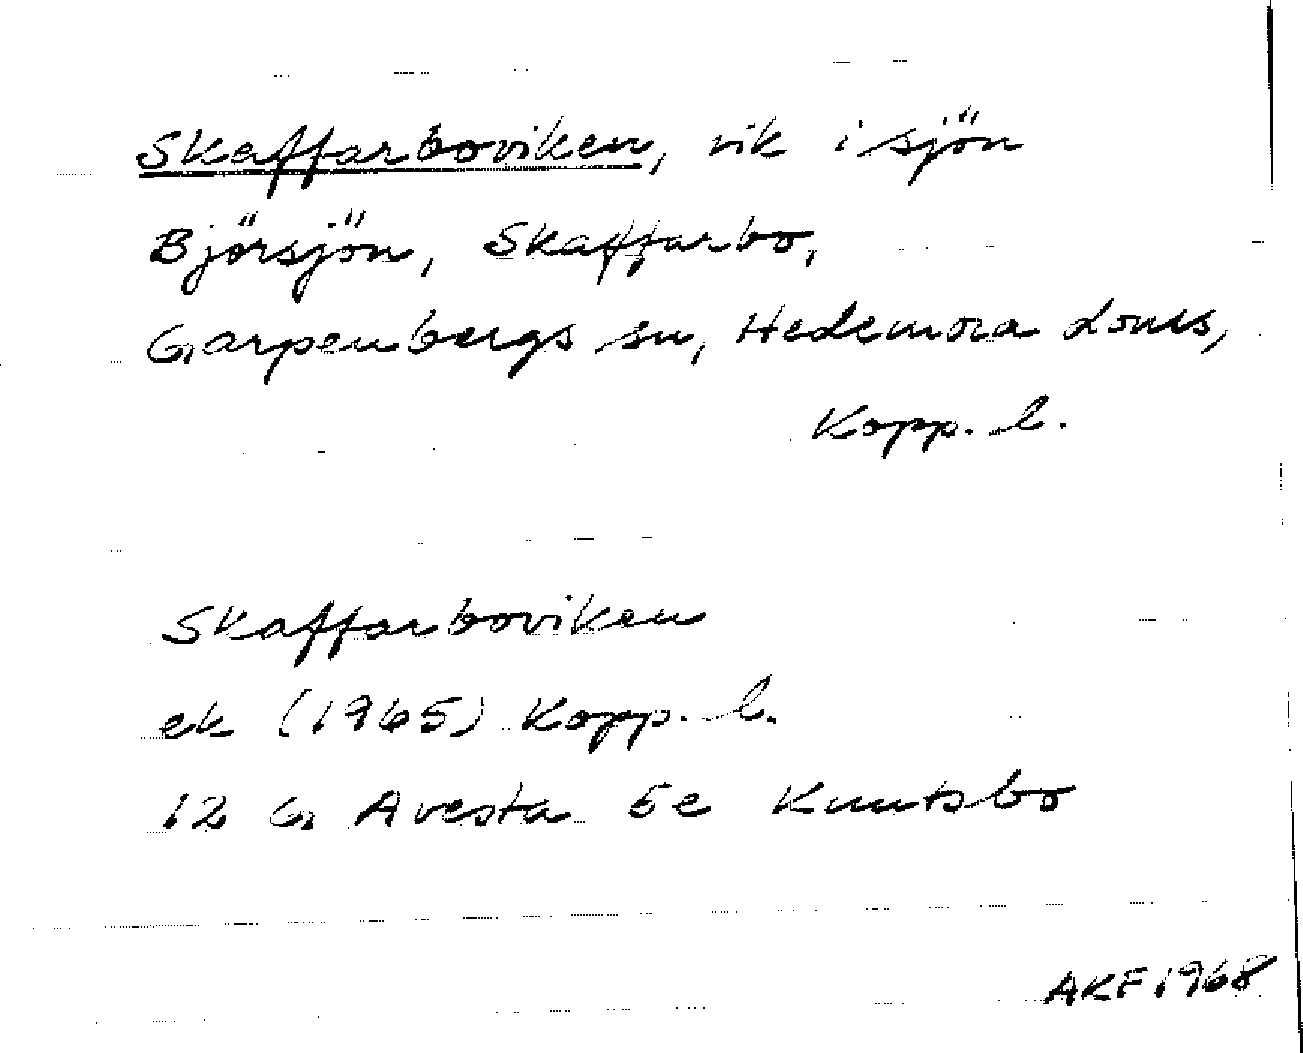 Skaffarboviken, vik i sjön
Björsjön, Skaffarbo,
Garpenbergs sn, Hedemora domss,
Kopp. l.
Skaffarboviken
ek (1965) Kopp. l.
12 G Avesta 5e Knutsbo
AKF 1968